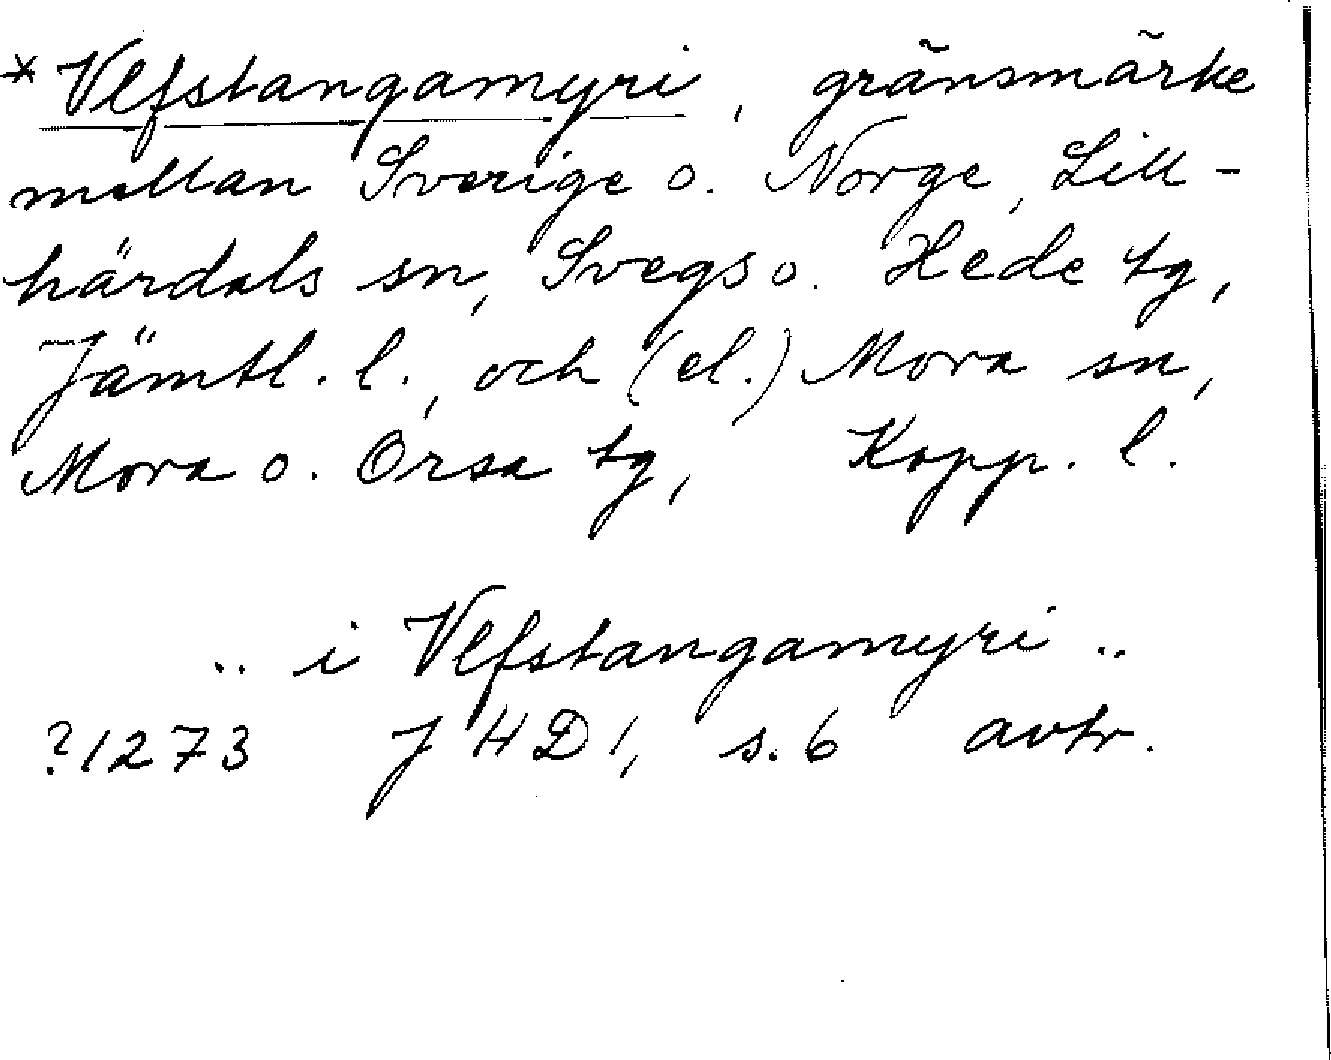 * Vlfstangamyri, gränsmärke
mellan Sverige o. Norge, Lill-
härdals sn, Svegs o. Hede tg,
Jämtl. l., och (el.) Mora sn,
Mora o. Orsa tg, Kopp. l.
.. i Vlfstangamyri ..
?1273 J H D 1, s. 6 avtr.